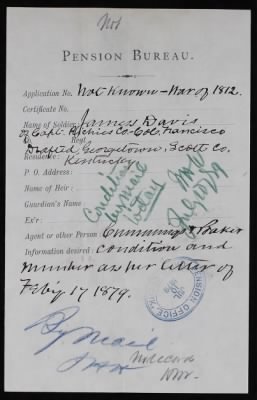 Not
PENSION BUREAU.
Application No. Not Known - War of 1812.
Certificate No.
Name of Soldier, James Davis
Co. Capt. Richies Co. Col. Francisco
Regt.
Drafted, Georgetown, Scott Co.
Residence: Kentucky
P. O. Address:
Name of Heir:
Guardian's Name:
Ex'r:
Agent or other Person Cummings & Baker
Information desired: condition and
number as per letter of
Feby 17 1879.
Condition
by mail
today
July 10/79
PENSION OFFICE
By Mail
No record